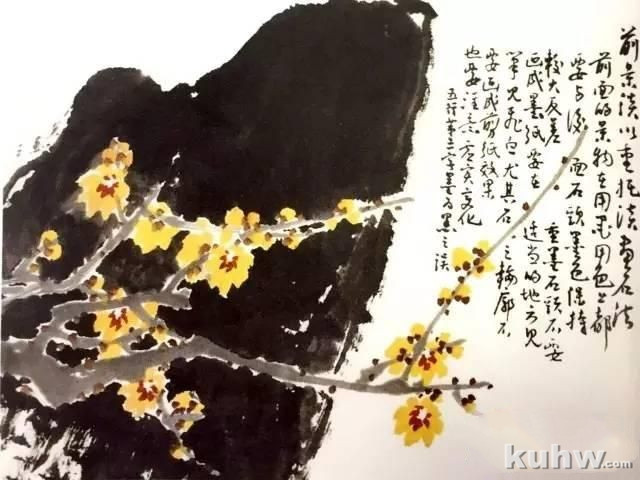 前景淡以重托淡画石法
前面的景物在用墨用色上都
要与后面石头墨色保持
较大反差 重墨石头不要
画成墨纸要在适当的地方见
笔见飞白尤其石之轮廓不
要画成剪纸效果
也要注意虚实变化
五行第三字墨为黑之误
kuhw.com